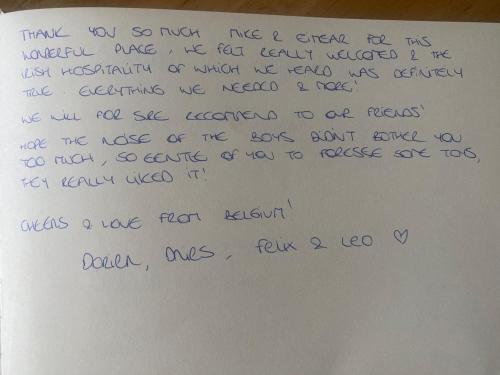 THANK YOU SO MUCH MIKE & EIMEAR FOR THIS
WONDERFUL PLACE, WE FELT REALLY WELCOMED & THE
IRISH HOSPITALITY OF WHICH WE HEARD WAS DEFINITELY
TRUE. EVERYTHING WE NEEDED & MORE!
WE WILL FOR SURE RECOMMEND TO OUR FRIENDS!
HOPE THE NOISE OF THE BOYS DIDN'T BOTHER YOU
TOO MUCH, SO GENTLE OF YOU TO FORESEE SOME TOYS,
THEY REALLY LIKED IT!
CHEERS & LOVE FROM BELGIUM!
DORIEN, , FELIX & LEO ♡